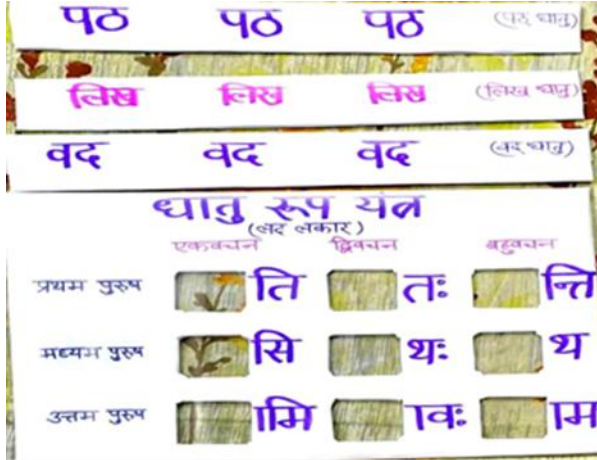 पठ पठ पठ (पठ् धातु)
लिख लिख लिख (लिख धातु)
वद वद वद (वद् धातु)
धातु रूप यंत्र
(लट् लकार)
एकवचन द्विवचन बहुवचन
प्रथम पुरुष ति तः न्ति
मध्यम पुरुष सि थः थ
उत्तम पुरुष ामि ावः ाम